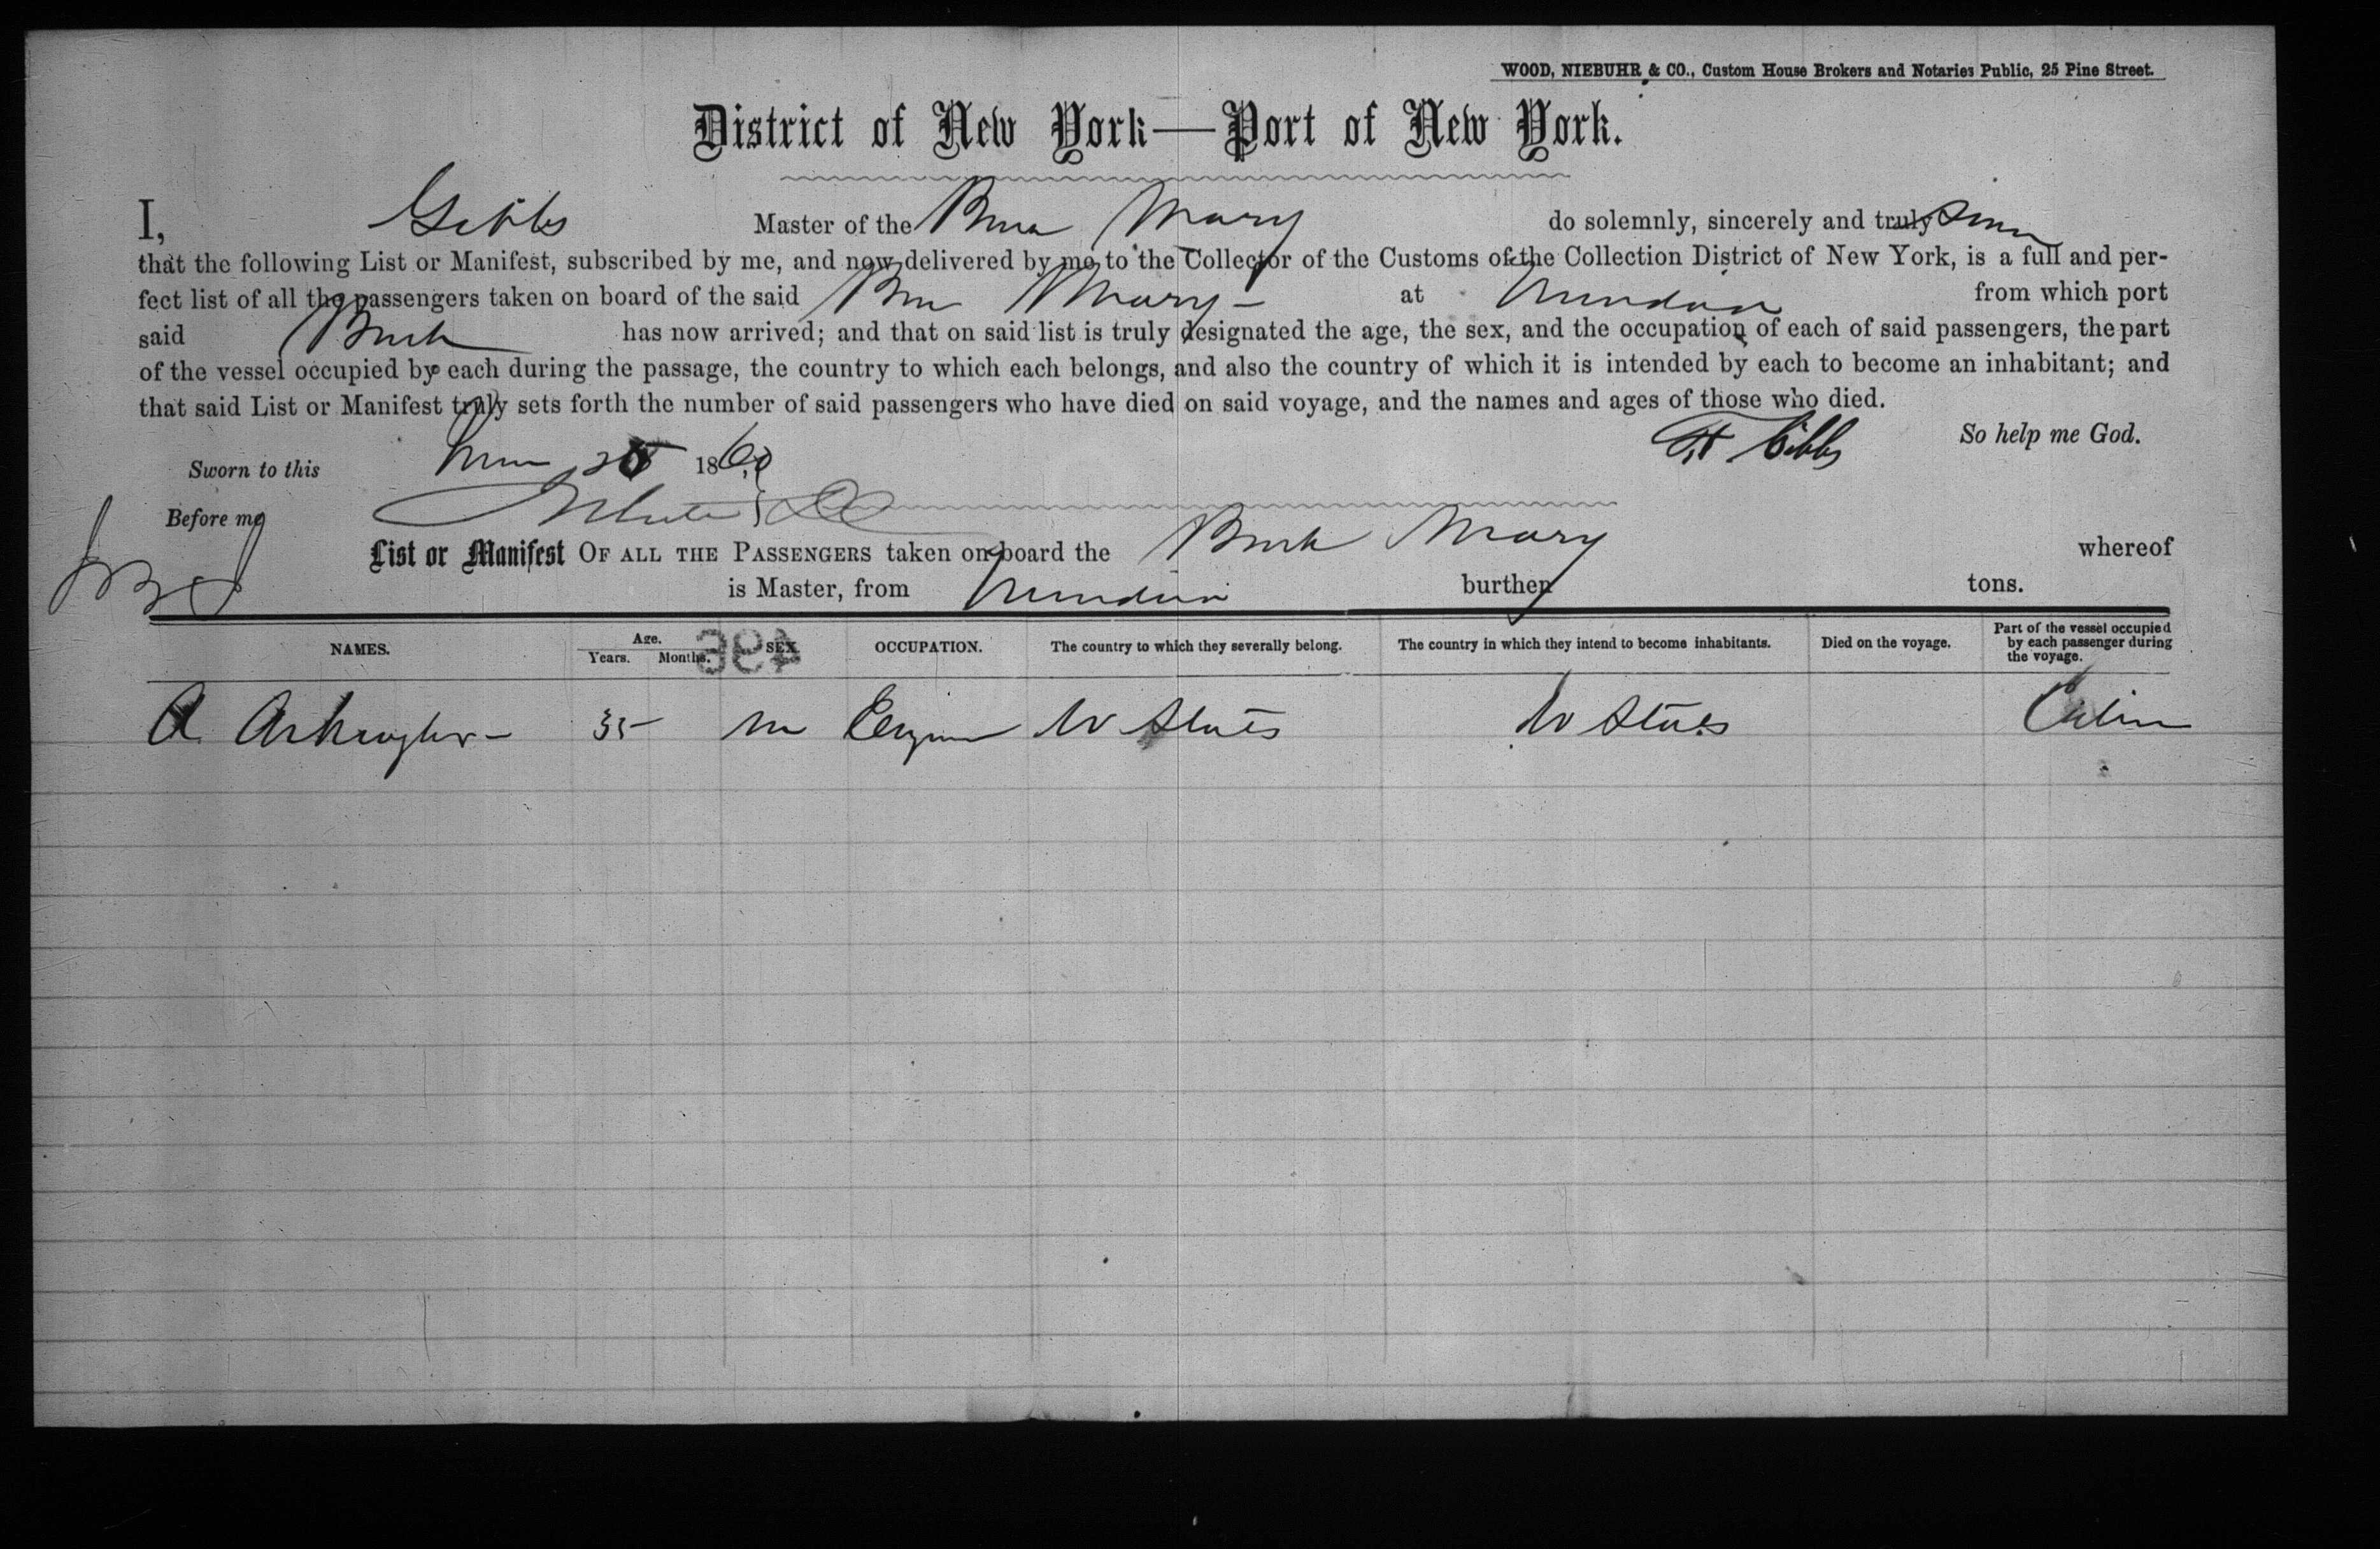 WOOD, NIEBUHR & CO., Custom House Brokers and Notaries Public, 25 Pine Street.
District of New York—Port of New York.
I, Gibbs Master of the Mary do solemnly, sincerely and truly
that the following List or Manifest, subscribed by me, and now delivered by me to the Collector of the Customs of the Collection District of New York, is a full and per-
fect list of all the passengers taken on board of the said Mary at from which port
said has now arrived; and that on said list is truly designated the age, the sex, and the occupation of each of said passengers, the part
of the vessel occupied by each during the passage, the country to which each belongs, and also the country of which it is intended by each to become an inhabitant; and
that said List or Manifest truly sets forth the number of said passengers who have died on said voyage, and the names and ages of those who died.
Gibbs So help me God.
Sworn to this 1860
Before me
List or Manifest OF ALL THE PASSENGERS taken on board the Mary whereof
is Master, from burthen tons.
NAMES. Age. Years. Months. SEX. OCCUPATION. The country to which they severally belong. The country in which they intend to become inhabitants. Died on the voyage. Part of the vessel occupied by each passenger during the voyage.
496
A 35 m U States U States Cabin